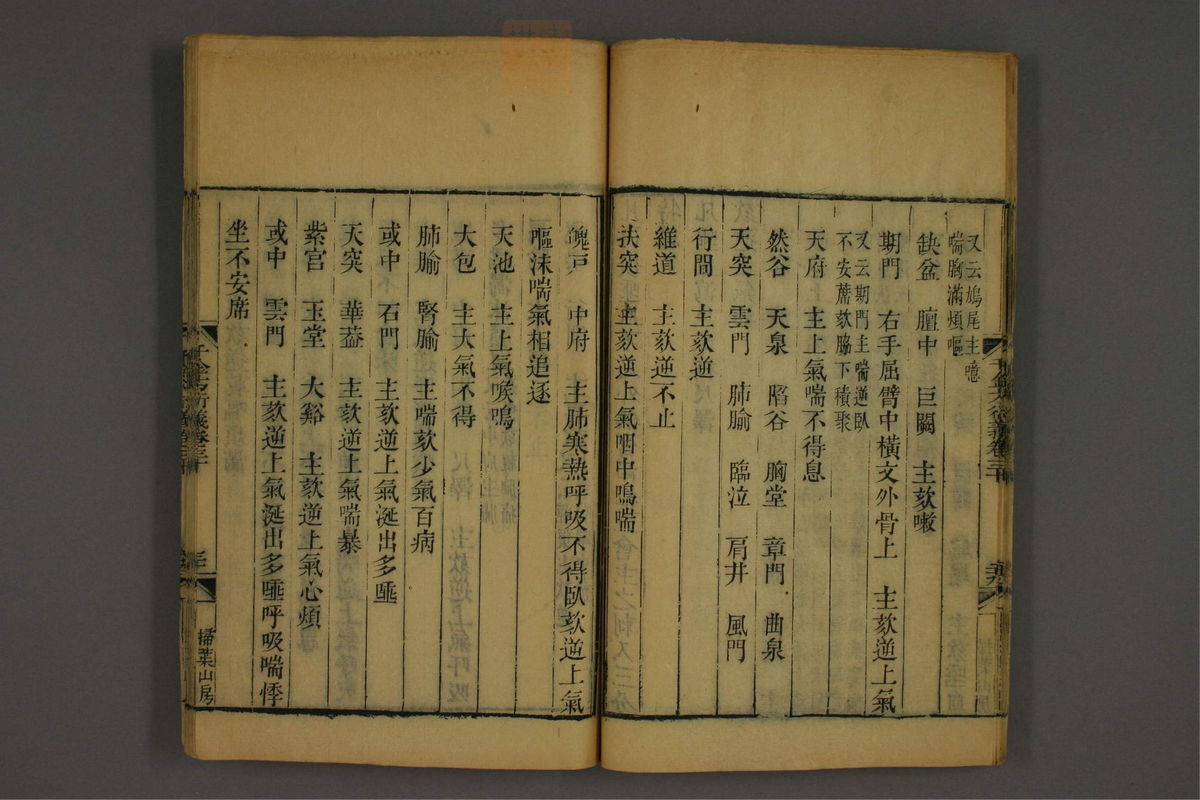 又云鳩尾主噫
喘胸滿煩嘔
缺盆 膻中 巨闕 主欬嗽
期門 右手屈臂中橫文外骨上 主欬逆上氣
又云期門主喘逆臥
不安蓆欬脇下積聚
天府 主上氣喘不得息
然谷 天泉 陷谷 胸堂 章門 曲泉
天突 雲門 肺腧 臨泣 肩井 風門
行間 主欬逆
維道 主欬逆不止
扶突 主欬逆上氣咽中鳴喘
魄戶 中府 主肺寒熱呼吸不得臥欬逆上氣
嘔沫喘氣相追逐
天池 主上氣喉鳴
大包 主大氣不得
肺腧 腎腧 主喘欬少氣百病
或中 石門 主欬逆上氣涎出多唾
天突 華葢 主欬逆上氣喘暴
紫宮 玉堂 大谿 主欬逆上氣心煩
或中 雲門 主欬逆上氣涎出多唾呼吸喘悸
坐不安席
千金方衍義卷三十
掃葉山房